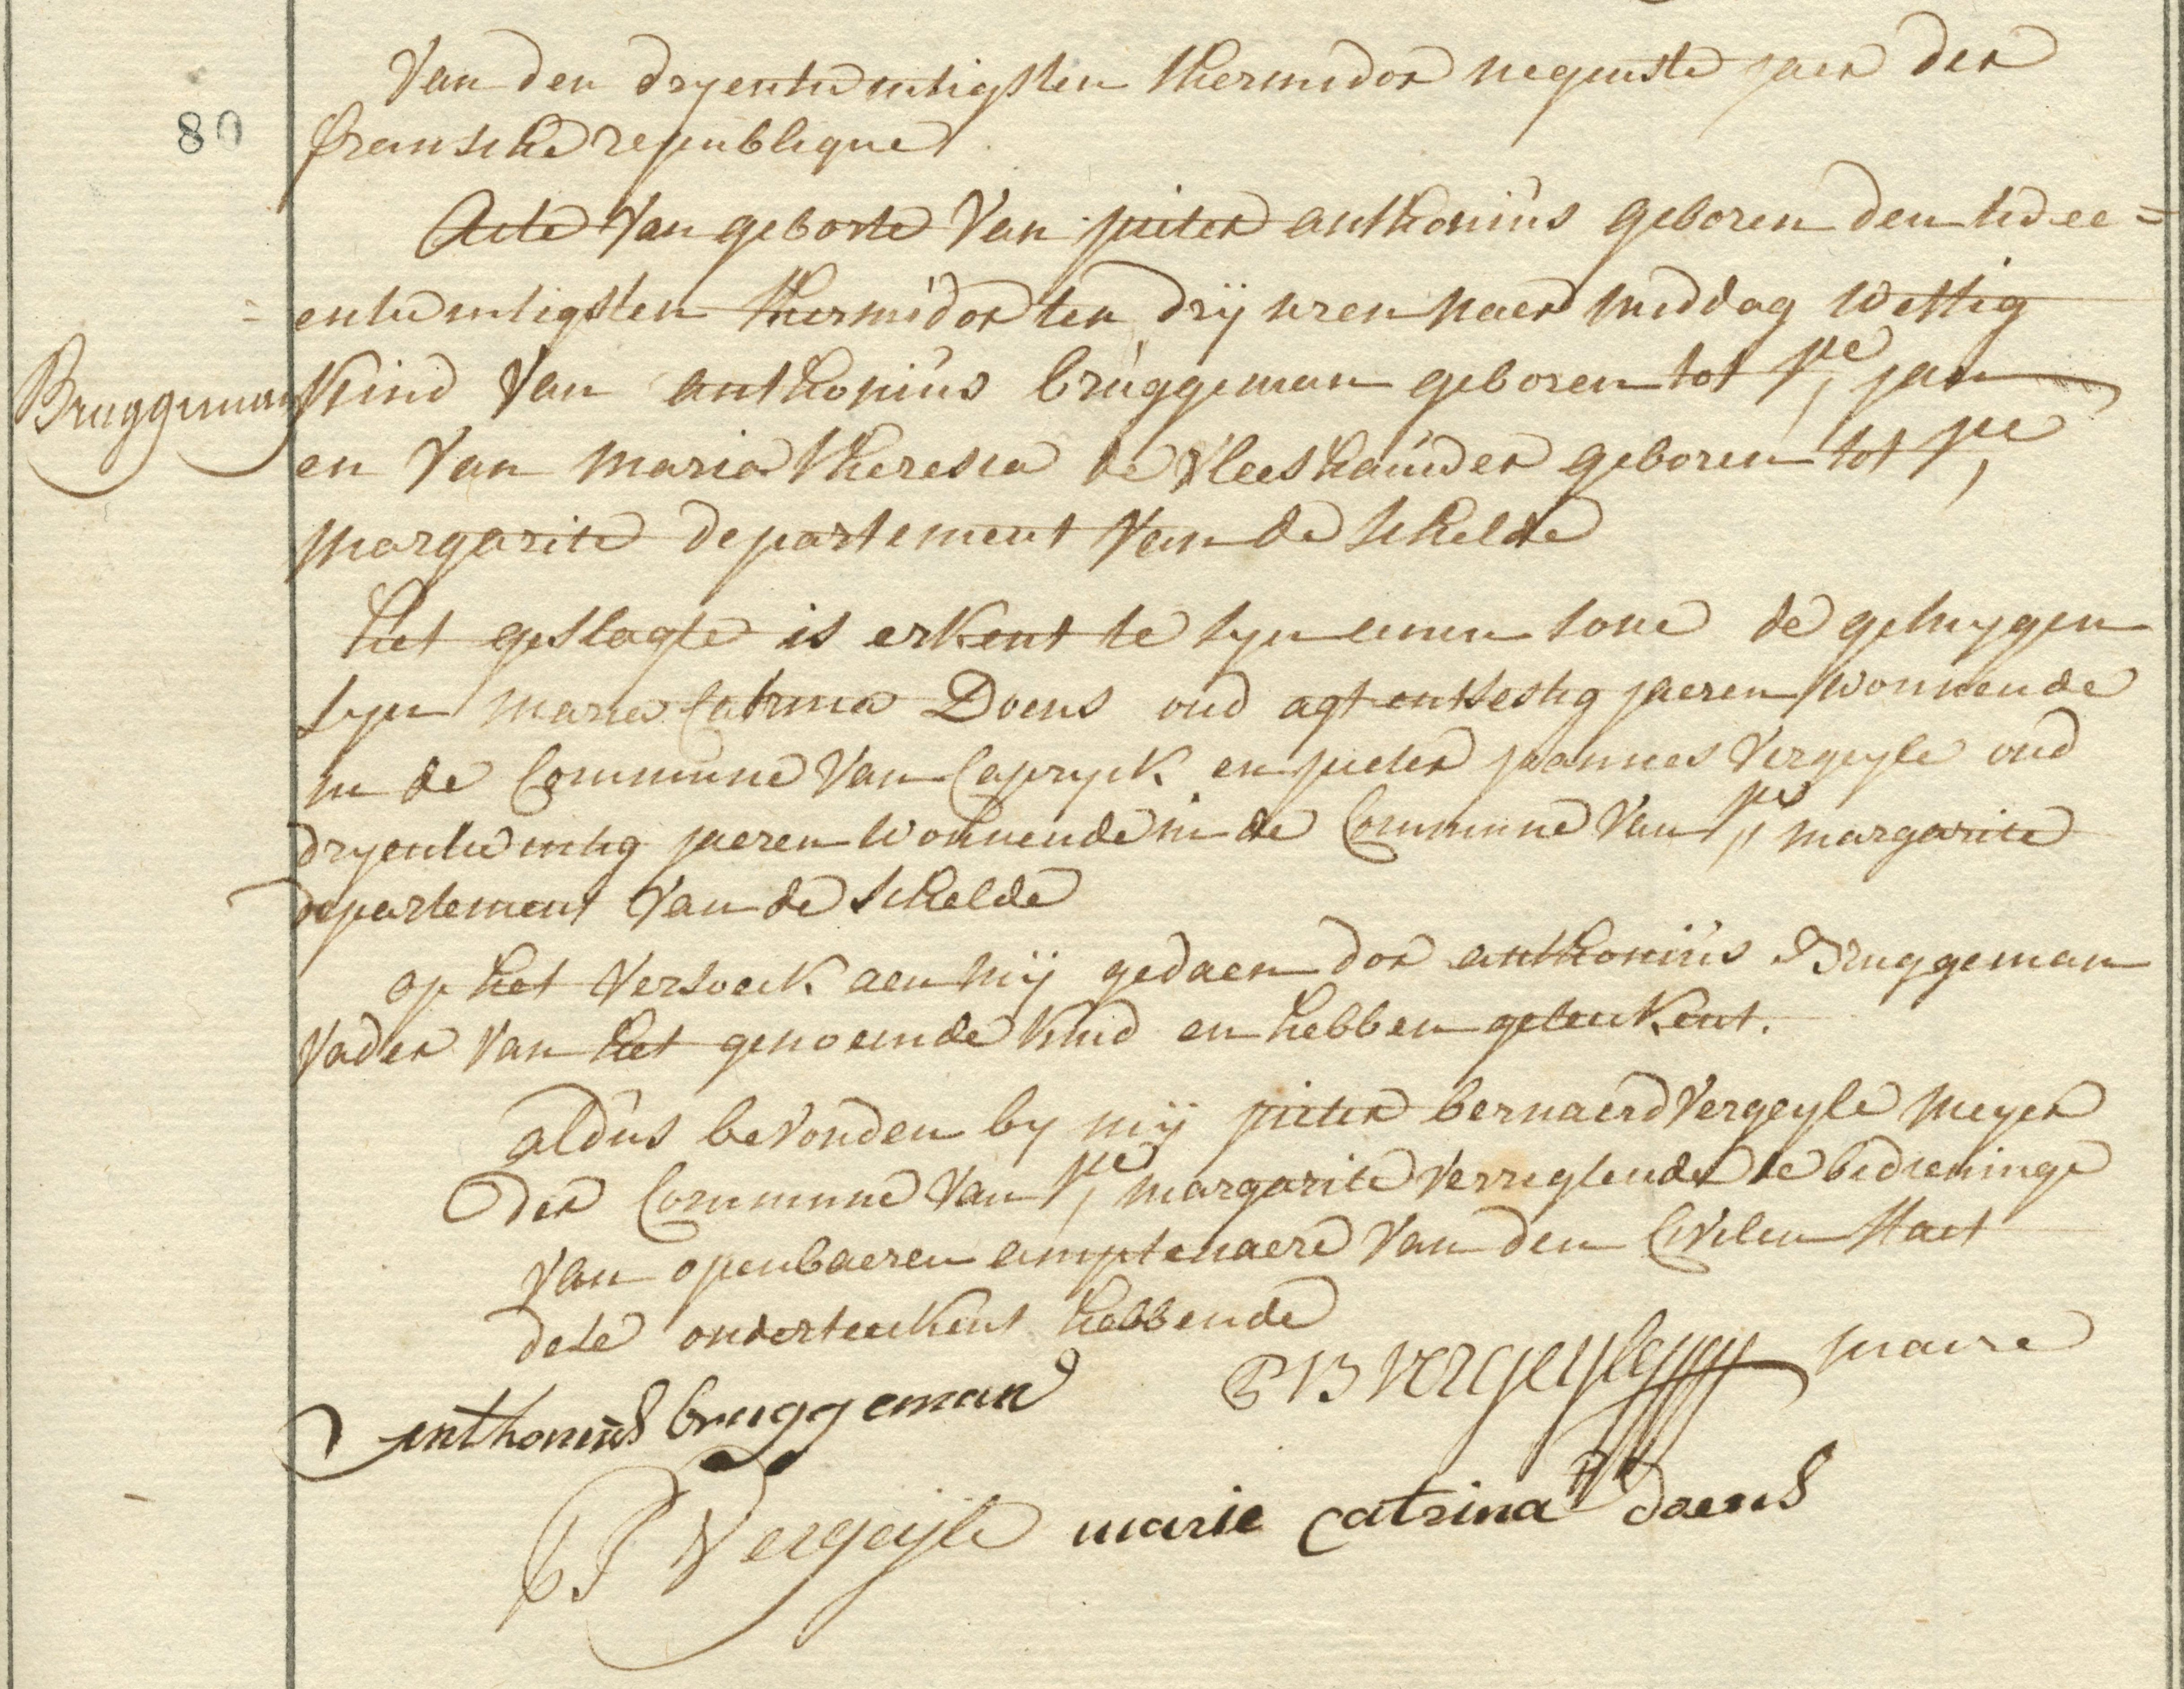 Van den dryentwintigsten thermidor negenste jaer der
80
fransche republique
Acte van geborte van pieter anthonius geboren den twee=
=entwintigsten thermidor ten drij uren naer middag wettig
Bruggeman
kind van anthonius bruggeman geboren tot Ste jan
en van maria theresia de vleeshauwder geboren tot Ste
margarite departement van de schelde
het geslagte is erkent te syn eenen sone de getuygen
syn maria Catrina Doens oud agtentsestig jaeren wonnende
in de Commune van Capryck en pieter joannes Vergeyle oud
dryentwintig jaeren wonnende in de Commune van Ste margarite
departement van de schelde
op het versoeck aen mij gedaen dor anthonius Bruggeman
vader van het genoemde kind en hebben geteekent.
aldus bevonden by mij pieter bernaerd Vergeyle meyer
der Commune van Ste margarite verreglende de bedieninge
van openbaeren amptenaere van den Civilen staet
dese onderteekent hebbende
PB vergeyle maire
anthonius bruggeman
PJ Vergeijle marie catrina doens